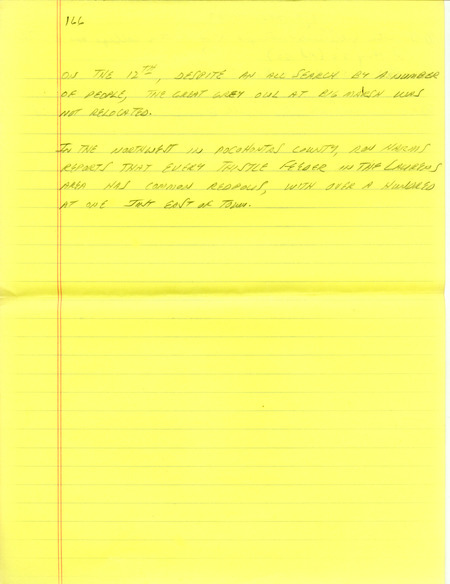 166
ON THE 12TH, DESPITE AN ALL SEARCH BY A NUMBER
OF PEOPLE, THE GREAT GREY OWL AT BIG MARSH WAS
NOT RELOCATED.
IN THE NORTHWEST IN POCAHONTAS COUNTY, RON HARMS
REPORTS THAT EVERY THISTLE FEEDER IN THE LAURENS
AREA HAS COMMON REDPOLLS, WITH OVER A HUNDRED
AT ONE JUST EAST OF TOWN.